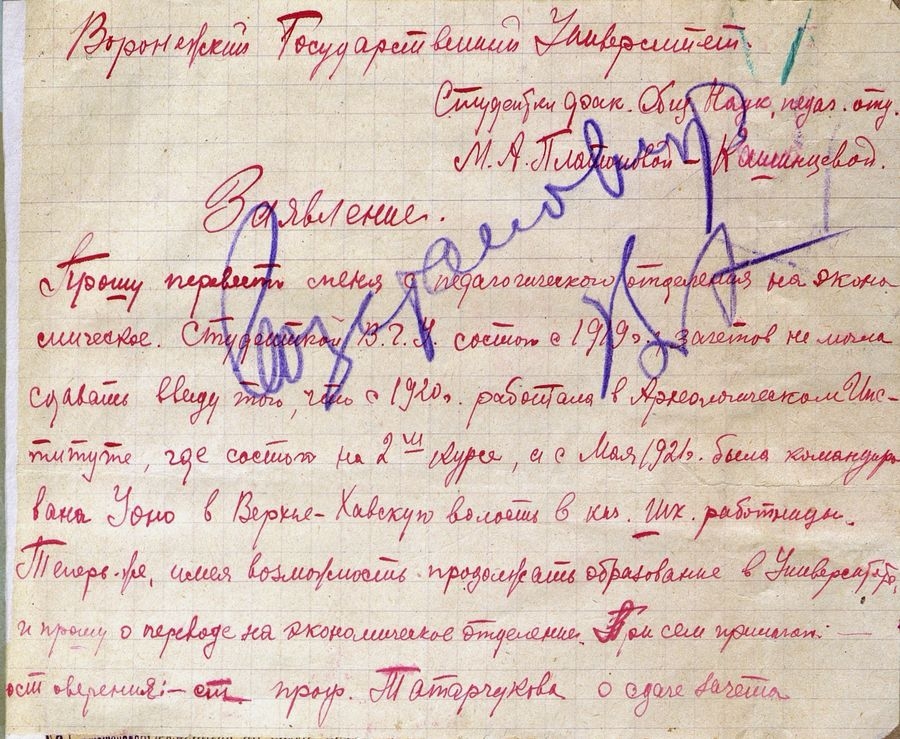 Воронежский Государственный Университет.
Студентки фак. Общ. Наук, педаг. отд.
М. А. Платоновой-Кашинцевой.
Заявление.
Прошу перевести меня с педагогического отделения на эконо-
мическое. Студенткой В. Г. У. состою с 1919 г., зачетов не могла
сдавать ввиду того, что с 1920 г. работала в Археологическом Инс-
титуте, где состою на 2ом курсе, а с Мая 1921 г. была командиро
вана Уоно в Верхне-Хавскую волость в кач. шк. работницы.
Теперь-же, имея возможность продолжать образование в Университете,
и прошу о переводе на экономическое отделение. При сем прилагаю: —
остоверения:- ст проф. Татарчукова о сдаче зачета